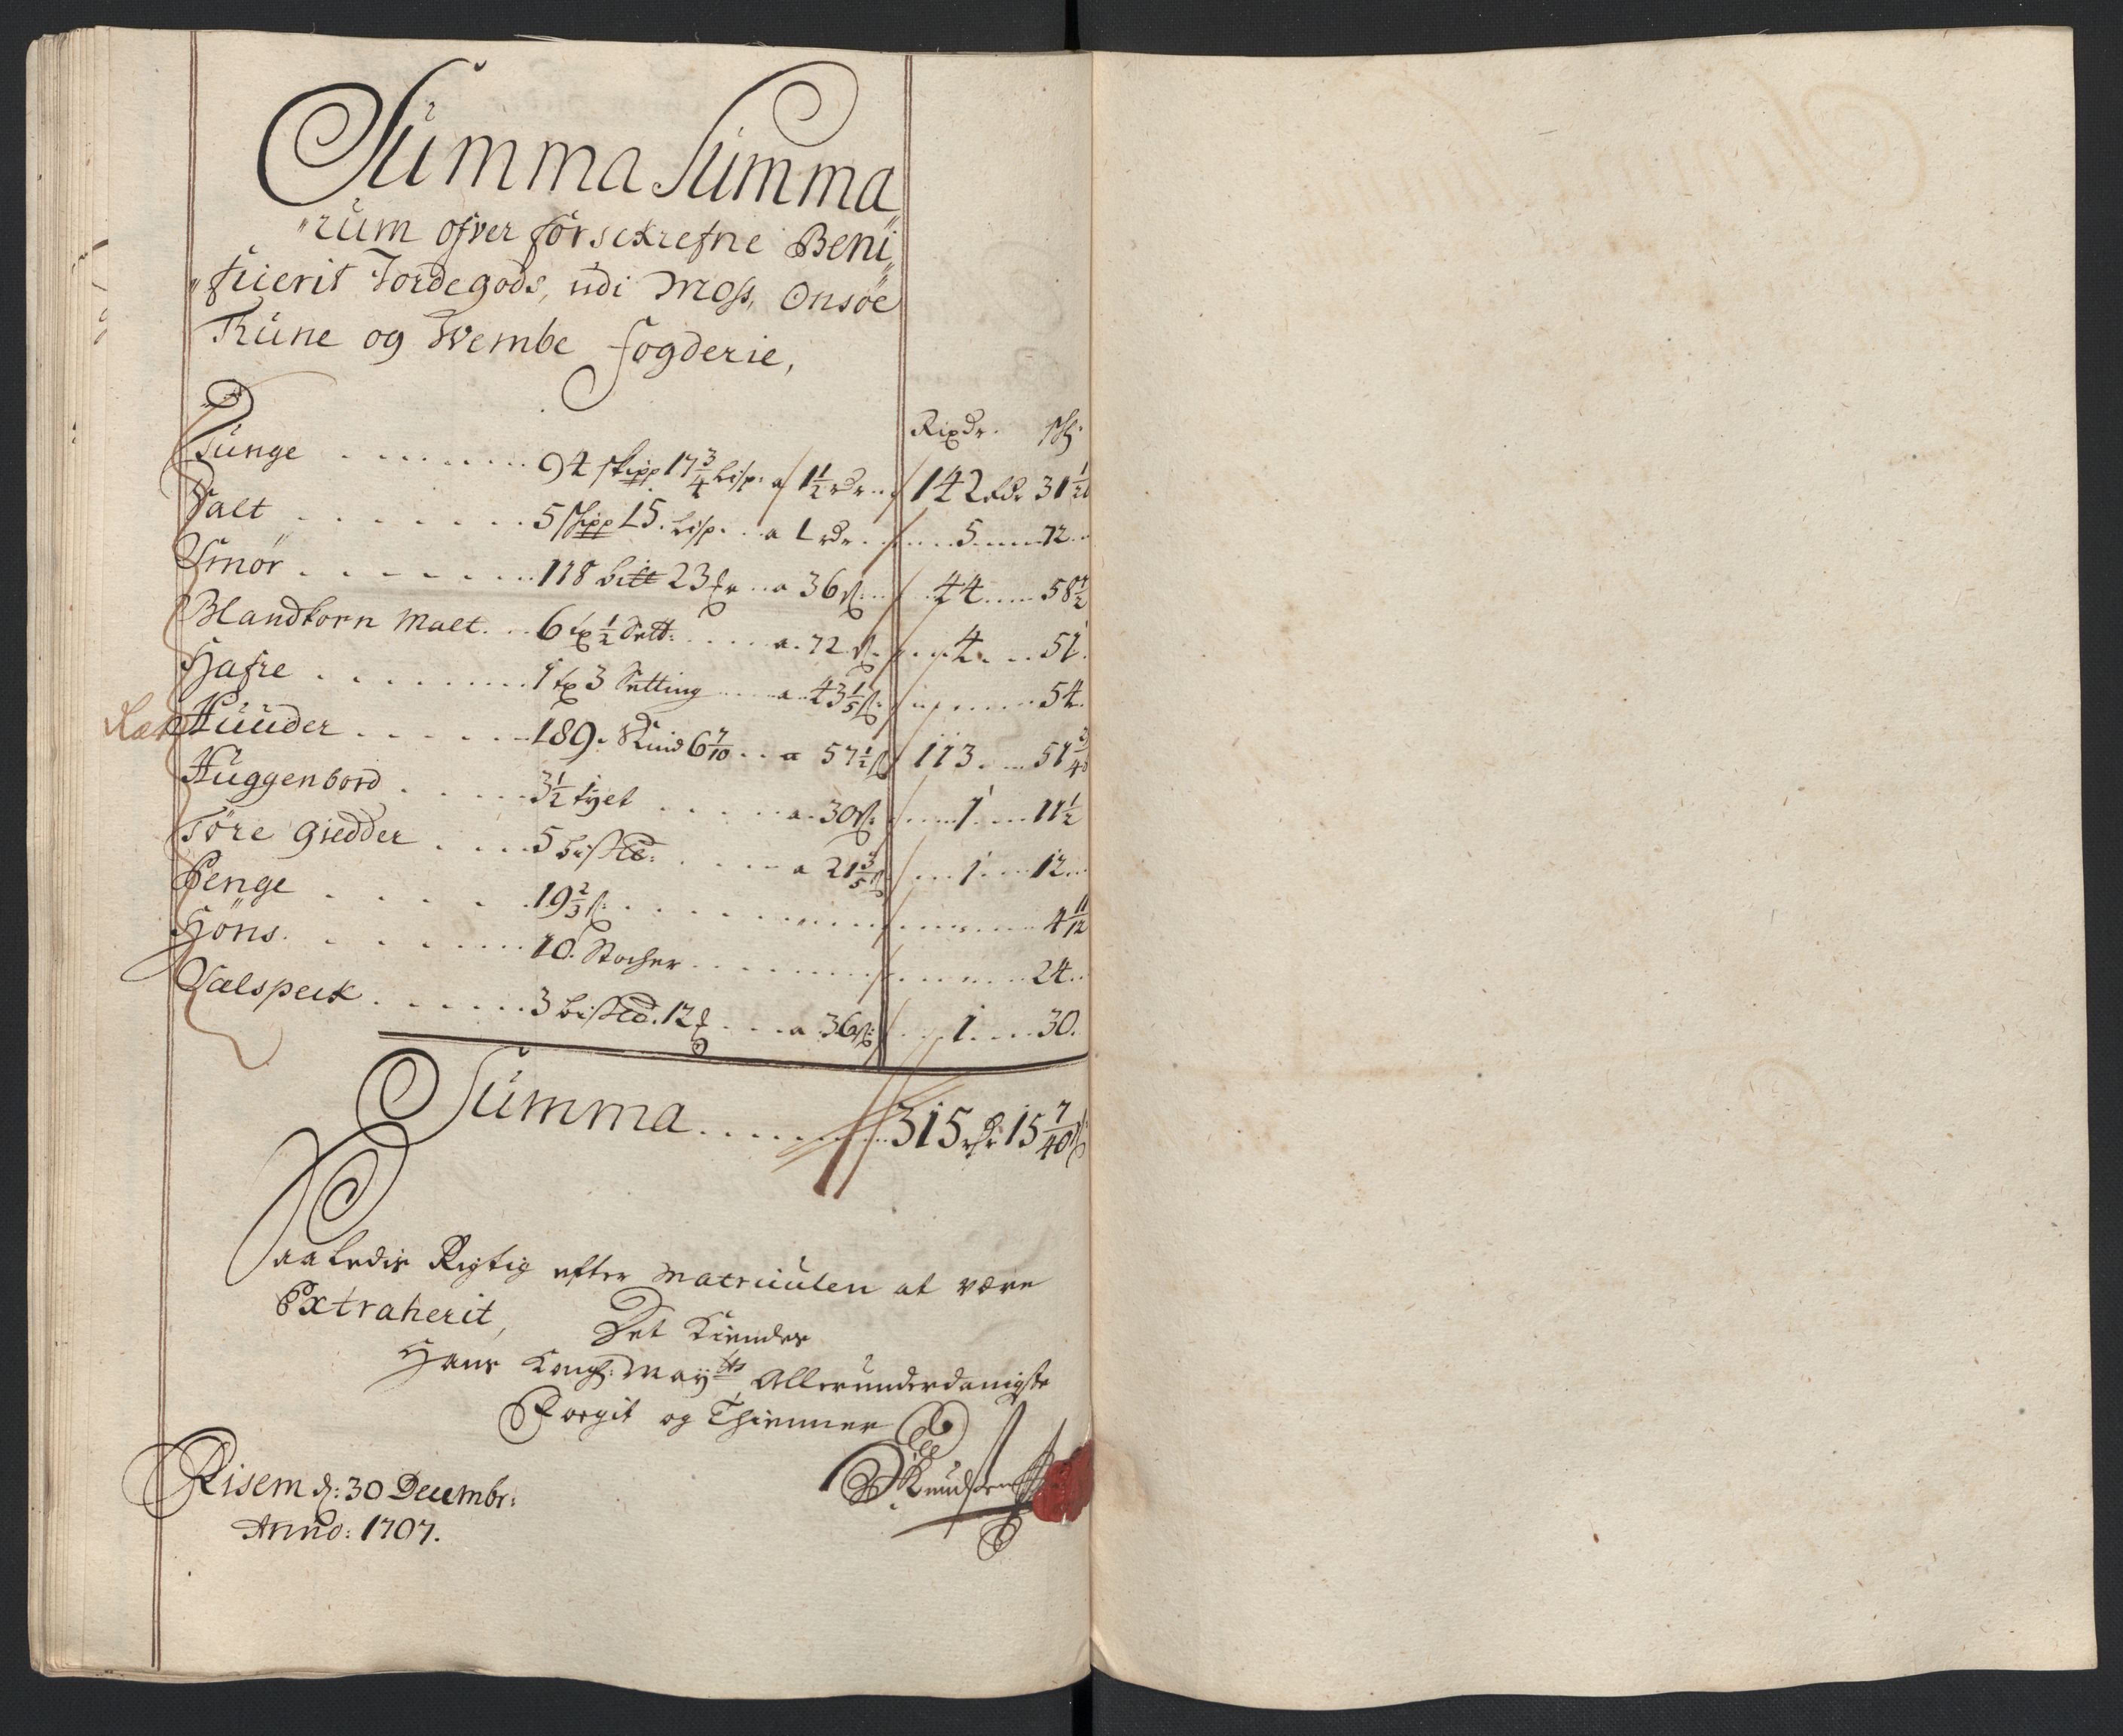 Summa Summa„
„rum ofver forsckrefne Beni„
„ficierit Jordegods, udi Moss, Onsöe
Thune og Wembe fogderie,
Rixdr. ß:
Tunge 94 skipp 17 3/4 Lisp: a 1 1/2 rdr 142 rdr 31 1/2
Salt 5 skipp 15 Lisp. a 1 rdr 5 72
Smör 118 bitt 23 a 36 ß 44 58 1/2
Blandkorn Malt 6 tp 1/2 Sett: a 72 ß 4 51
Hafre 1 tp 3 Setting a 43 1/5 ß 54
Huuder 189. Skind 6 7/10 a 57 1/2 ß 113 51
Huggenbord 3 1/2 tyet a 30 ß 1 11 1/2
Töre giedder 5 a 21 3/5 ß 1 12
Penge 19 2/3 ß 4 11/12
Höns 10 Stocher 24
Sælspeck 3 12 a 36 ß 1 30.
Summa 315 rdr 15 7/40 ß
Saaledis Rigtig efter Matriculen at være
Extraherit,
Det Kiendes
Hans Kongl: Mayts Allerunderdanigste
og Thienner
Knudsen
Risem d: 30 Decembr:
Anno: 1707.